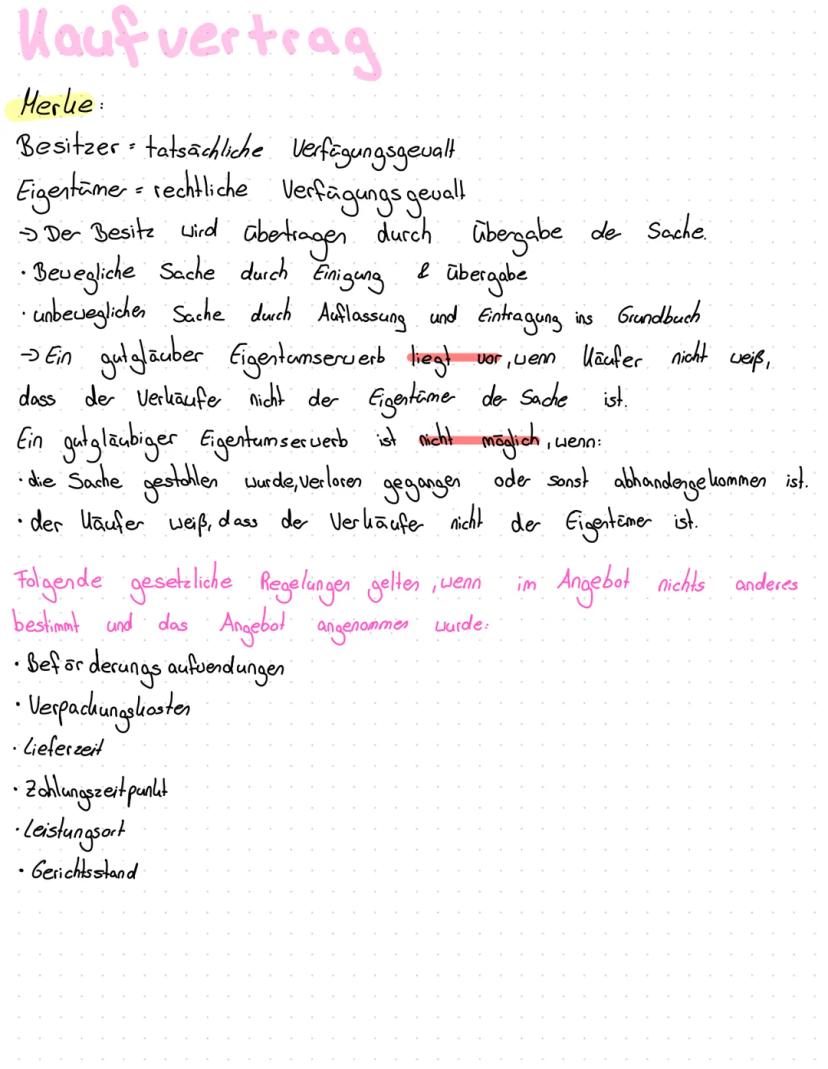 Kaufvertrag
Merke:
Besitzer = tatsächliche Verfügungsgewalt
Eigentümer = rechtliche Verfügungsgewalt
→ Der Besitz wird übertragen durch Übergabe der Sache.
· Bewegliche Sache durch Einigung & übergabe
· unbeweglicher Sache durch Auflassung und Eintragung ins Grundbuch
→ Ein gutgläuber Eigentumserwerb liegt vor, wenn Käufer nicht weiß,
dass der Verkäufer nicht der Eigentümer der Sache ist.
Ein gutgläubiger Eigentumserwerb ist nicht möglich, wenn:
· die Sache gestohlen wurde, verloren gegangen oder sonst abhandengekommen ist.
· der Käufer weiß, dass der Verkäufer nicht der Eigentümer ist.
Folgende gesetzliche Regelungen gelten, wenn im Angebot nichts anderes
bestimmt und das Angebot angenommen wurde:
· Beförderungsaufwendungen
· Verpackungskosten
· Lieferzeit
· Zahlungszeitpunkt
· Leistungsort
· Gerichtsstand